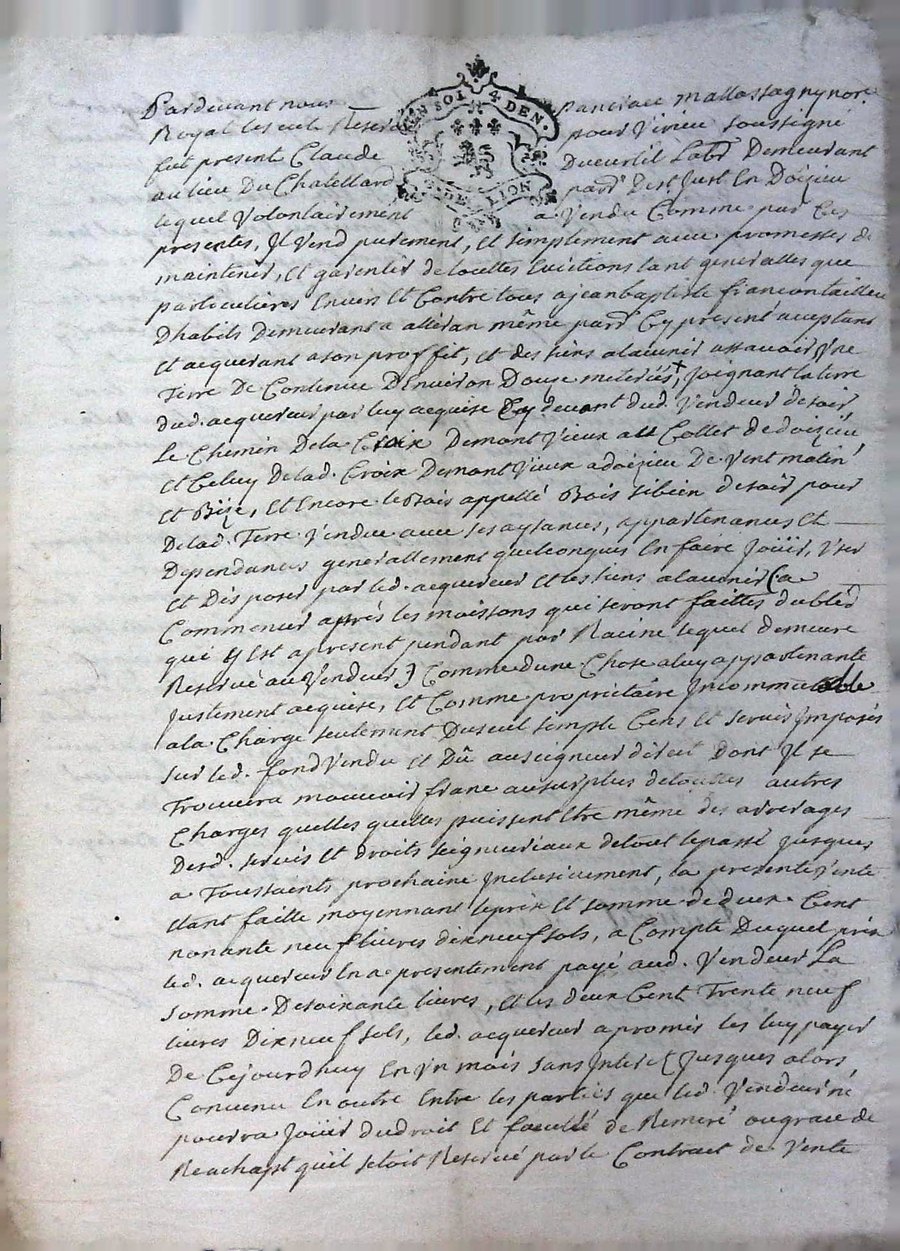 Pardevant nous Pancrace mallassagny nor.
Royal les cele Reserv pour Virieu soussigné
fut present Claude Ducurtil Lab.r Demeurant
au lieu Du Chatellard par.se De st Just En Doizieu
lequel Volontairement a Vendu Comme par Ces
presentes, Il Vend purement, Et simplement avec promesses de
maintenir, Et garentir de touttes Evictions tant generalles que
particulieres Envers Et Contre tous a jean baptiste francon tailleur
Dhabits Demeurant a même par.se Cy present aceptant
Et acquerant a son proffit, et des siens a lavenir assavoir Vne
Terre De Contenue D'Environ Douze meterées, Joignant la terre
dud. acquereur par luy acquise Cy devant dud. Vendeur de soir
Le Chemin De la Croix Demont Vieux au Collet de doizieu
Et Celuy De lad. Croix Demont Vieux a doizieu De Vent matin
Et Bize, Et Encore le Bois appellé Bois de soir pour
De lad. Terre Vendue avec ses aysances, appartenances Et
Dependances generallement quelconques En faire Joüir, Vser
Et Disposer par led. acquereur Et les siens a lavenir (a
Commencer aprés les moissons qui seront faittes du bled
qui y Est apresent pendant par Racine lequel demeure
Reservé au Vendeur) Comme dune Chose a luy appartenante
justement acquise, Et Comme propriétaire Incommutable
a la Charge seulement Du seul simple Cens Et servis Imposés
sur led. fond Vendu Et Dû au seigneur direct Dont Il se
Trouvera mouvoir franc au surplus de touttes autres
Charges quelles quelles puissent Etre même des arrerages
Desd. servis Et droits seigneuriaux de tout le passé Jusques
a Toussaints prochaine Inclusivement, La presente Vente
Etant faitte moyennant le prix Et somme de deux Cent
nonante neuf livres dixneuf sols, a Compte Duquel prix
led. acquereur En a presentement payé aud. Vendeur La
somme De soixante livres, Et les deux Cent Trente neuf
livres Dixneuf sols, led. acquereur a promis les luy payer
De Cejourdhuy En Vn mois sans Interet Jusques alors
Convenu En outre Entre les parties que led. Vendeur ne
pourra Joüir du droit Et faculté de Remeré ou grace de
Reachapt qu'il setoit Reservé par le Contract de Vente
GEN
SOI
4 DEN.
DE
LION